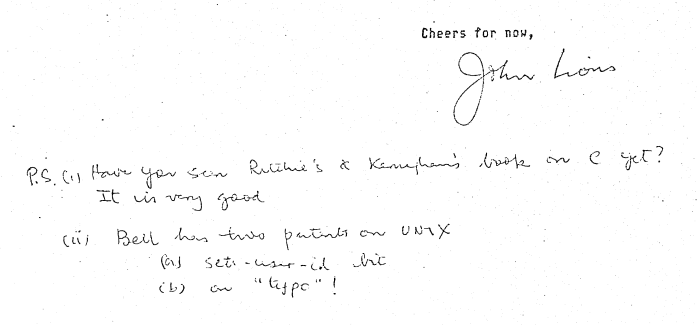 Cheers for now,
John Lions
P.S. (i) Have you seen Ritchie's & Kernighan's book on C yet?
It is very good
(ii) Bell has two patents on UNIX
(a) set-user-id bit
(b) on "typo"!